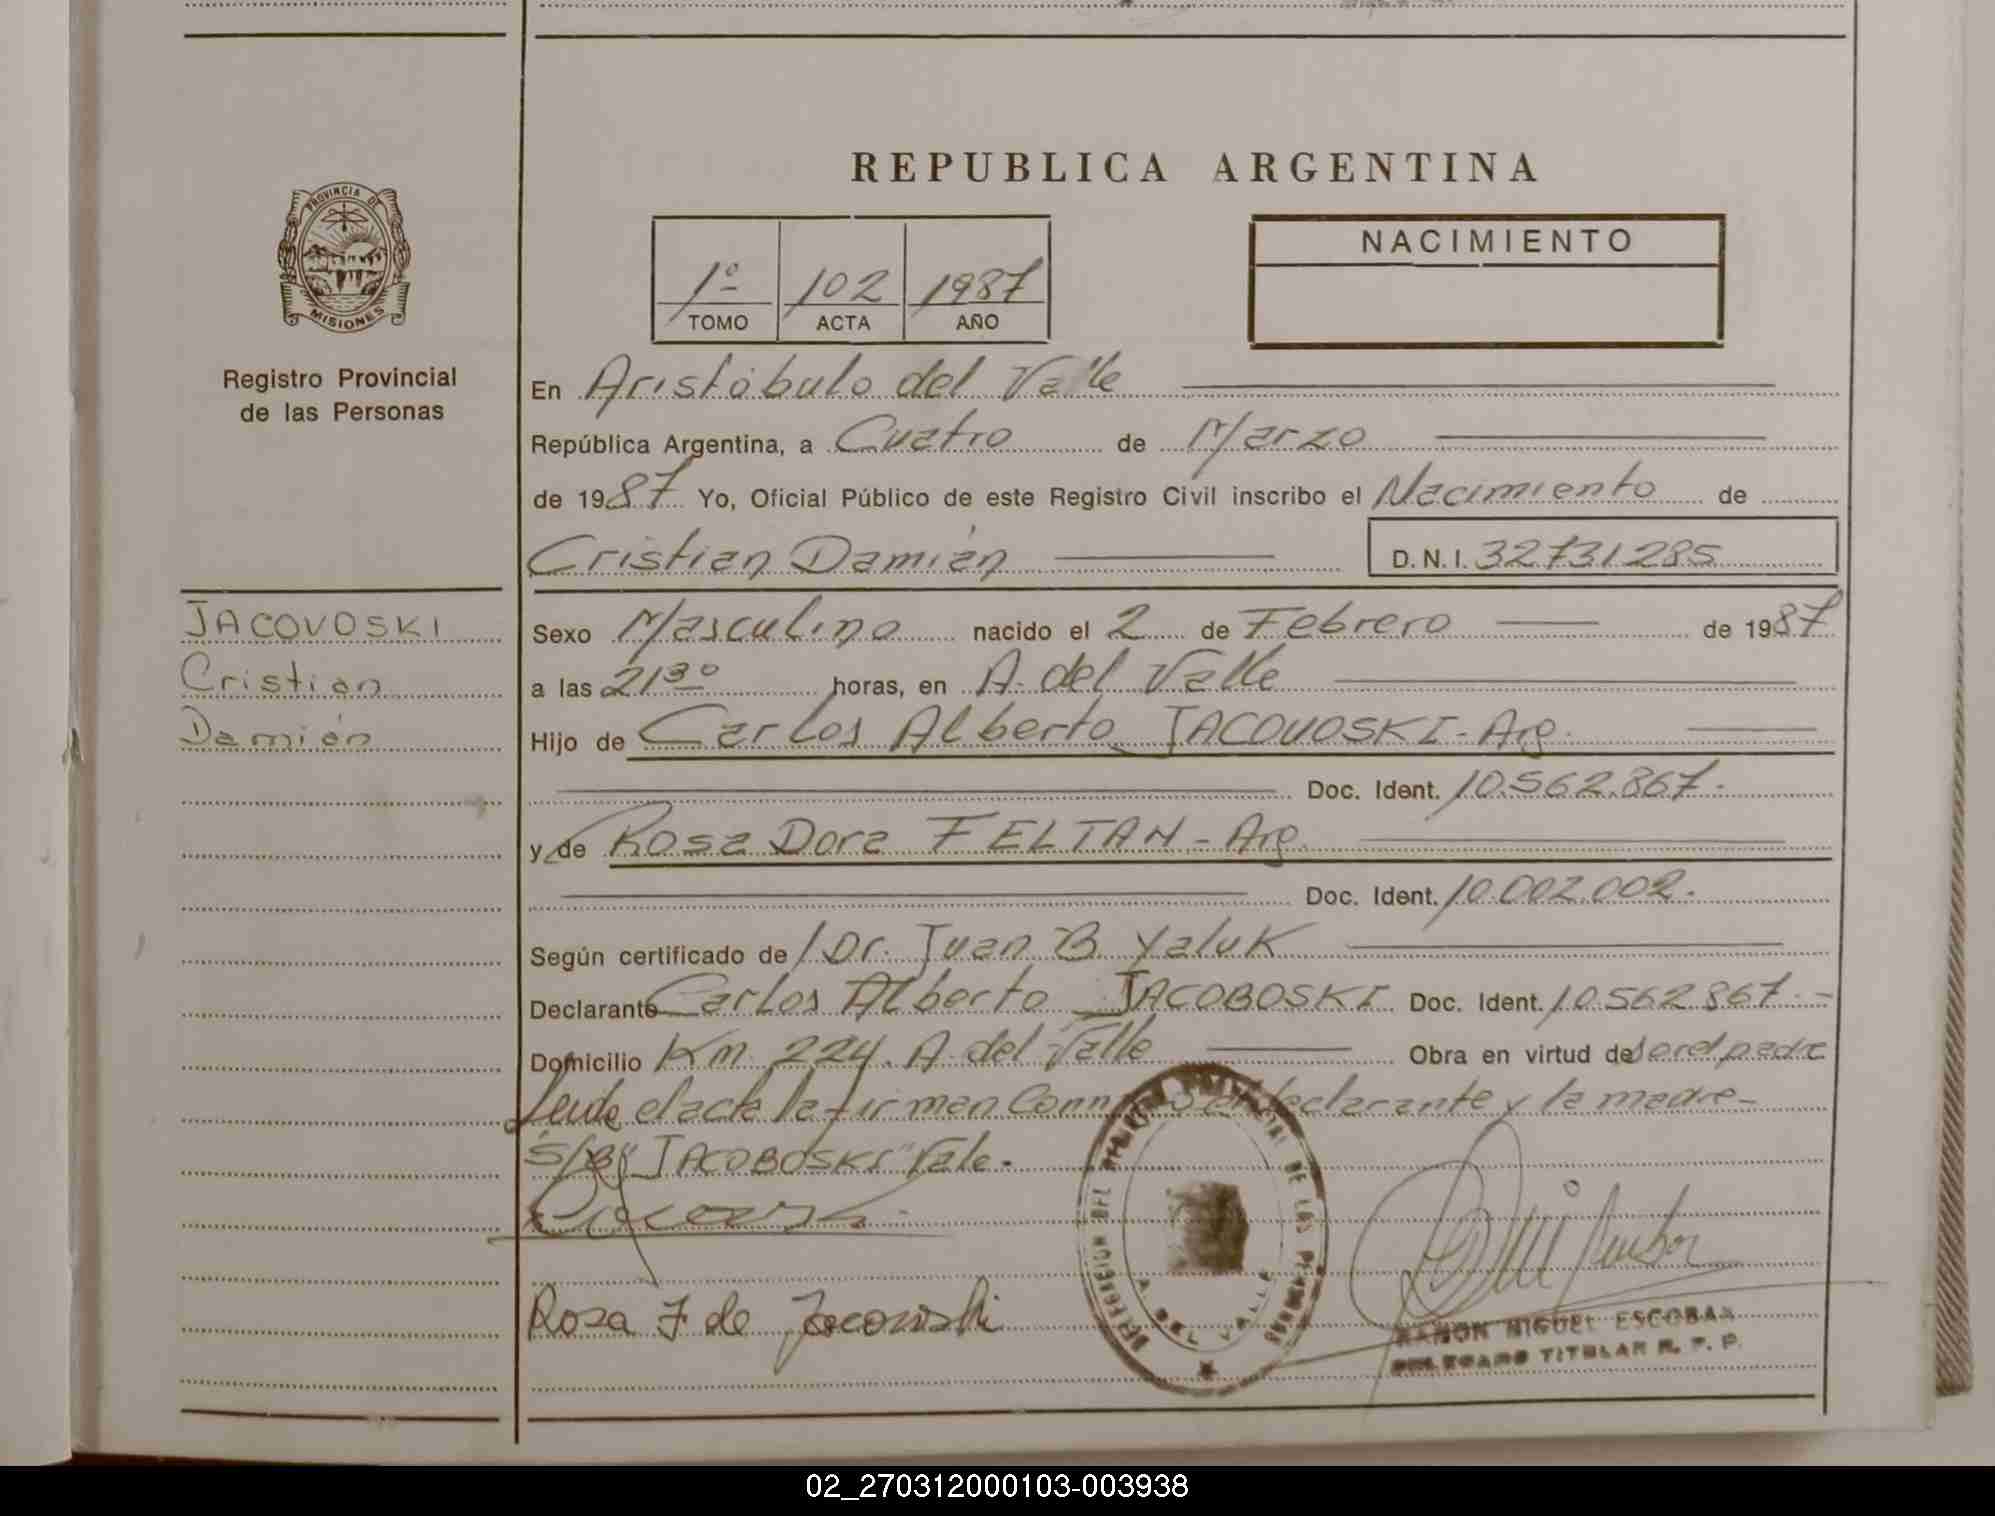 REPUBLICA ARGENTINA
PROVINCIA DE
MISIONES
Registro Provincial
de las Personas
1º 102 1987
TOMO ACTA AÑO
NACIMIENTO
En Aristóbulo del Valle
República Argentina, a Cuatro de Marzo
de 1987 Yo, Oficial Público de este Registro Civil inscribo el Nacimiento de
Cristian Damián D.N.I. 32731285
JACOVOSKI
Cristian
Damián
Sexo Masculino nacido el 2 de Febrero de 1987
a las 21 30 horas, en A. del Valle
Hijo de Carlos Alberto JACOVOSKI - Arg.
Doc. Ident. 10.562.867.
y de Rosa Dora FELTAN - Arg.
Doc. Ident. 10.002.002.
Según certificado de Dr. Juan B. Yaluk
Declarante Carlos Alberto JACOBOSKI Doc. Ident. 10.562.867.-
Domicilio Km. 224. A. del Valle Obra en virtud de ser el padre
Leida el acta la firman declarante y la madre-
S/B "JACOBOSKI" Vale.
Rosa F de Jacowski
DELEGACION DEL DE LAS PERSONAS
A. DEL VALLE
RAMON MIGUEL ESCOBAR
DELEGADO TITULAR R. P. P.
02_270312000103-003938